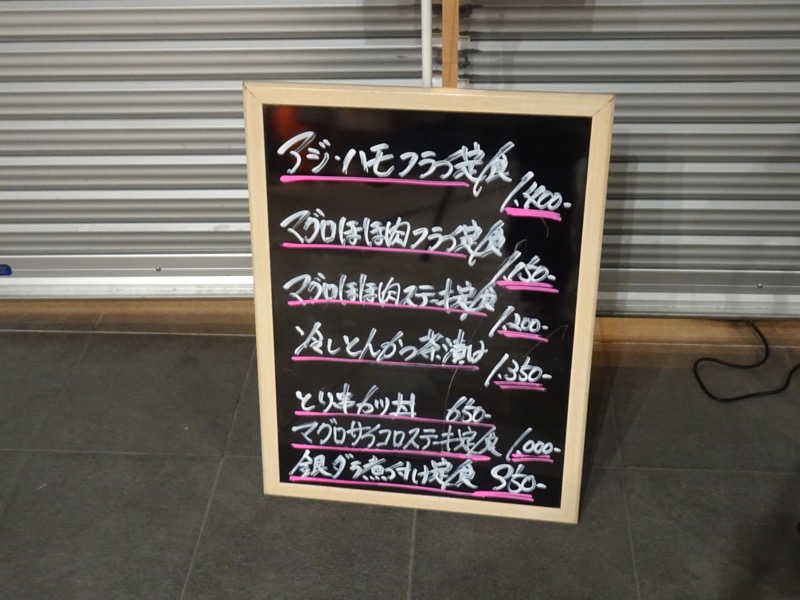 アジ・ハモフライ定食
1,400-
マグロほほ肉フライ定食
1,150-
マグロほほ肉ステーキ定食
1,200-
冷しとんかつ茶漬け
1,350-
とり串カツ丼 650-
マグロサイコロステーキ定食 1,000-
銀ダラ煮つけ定食 950-